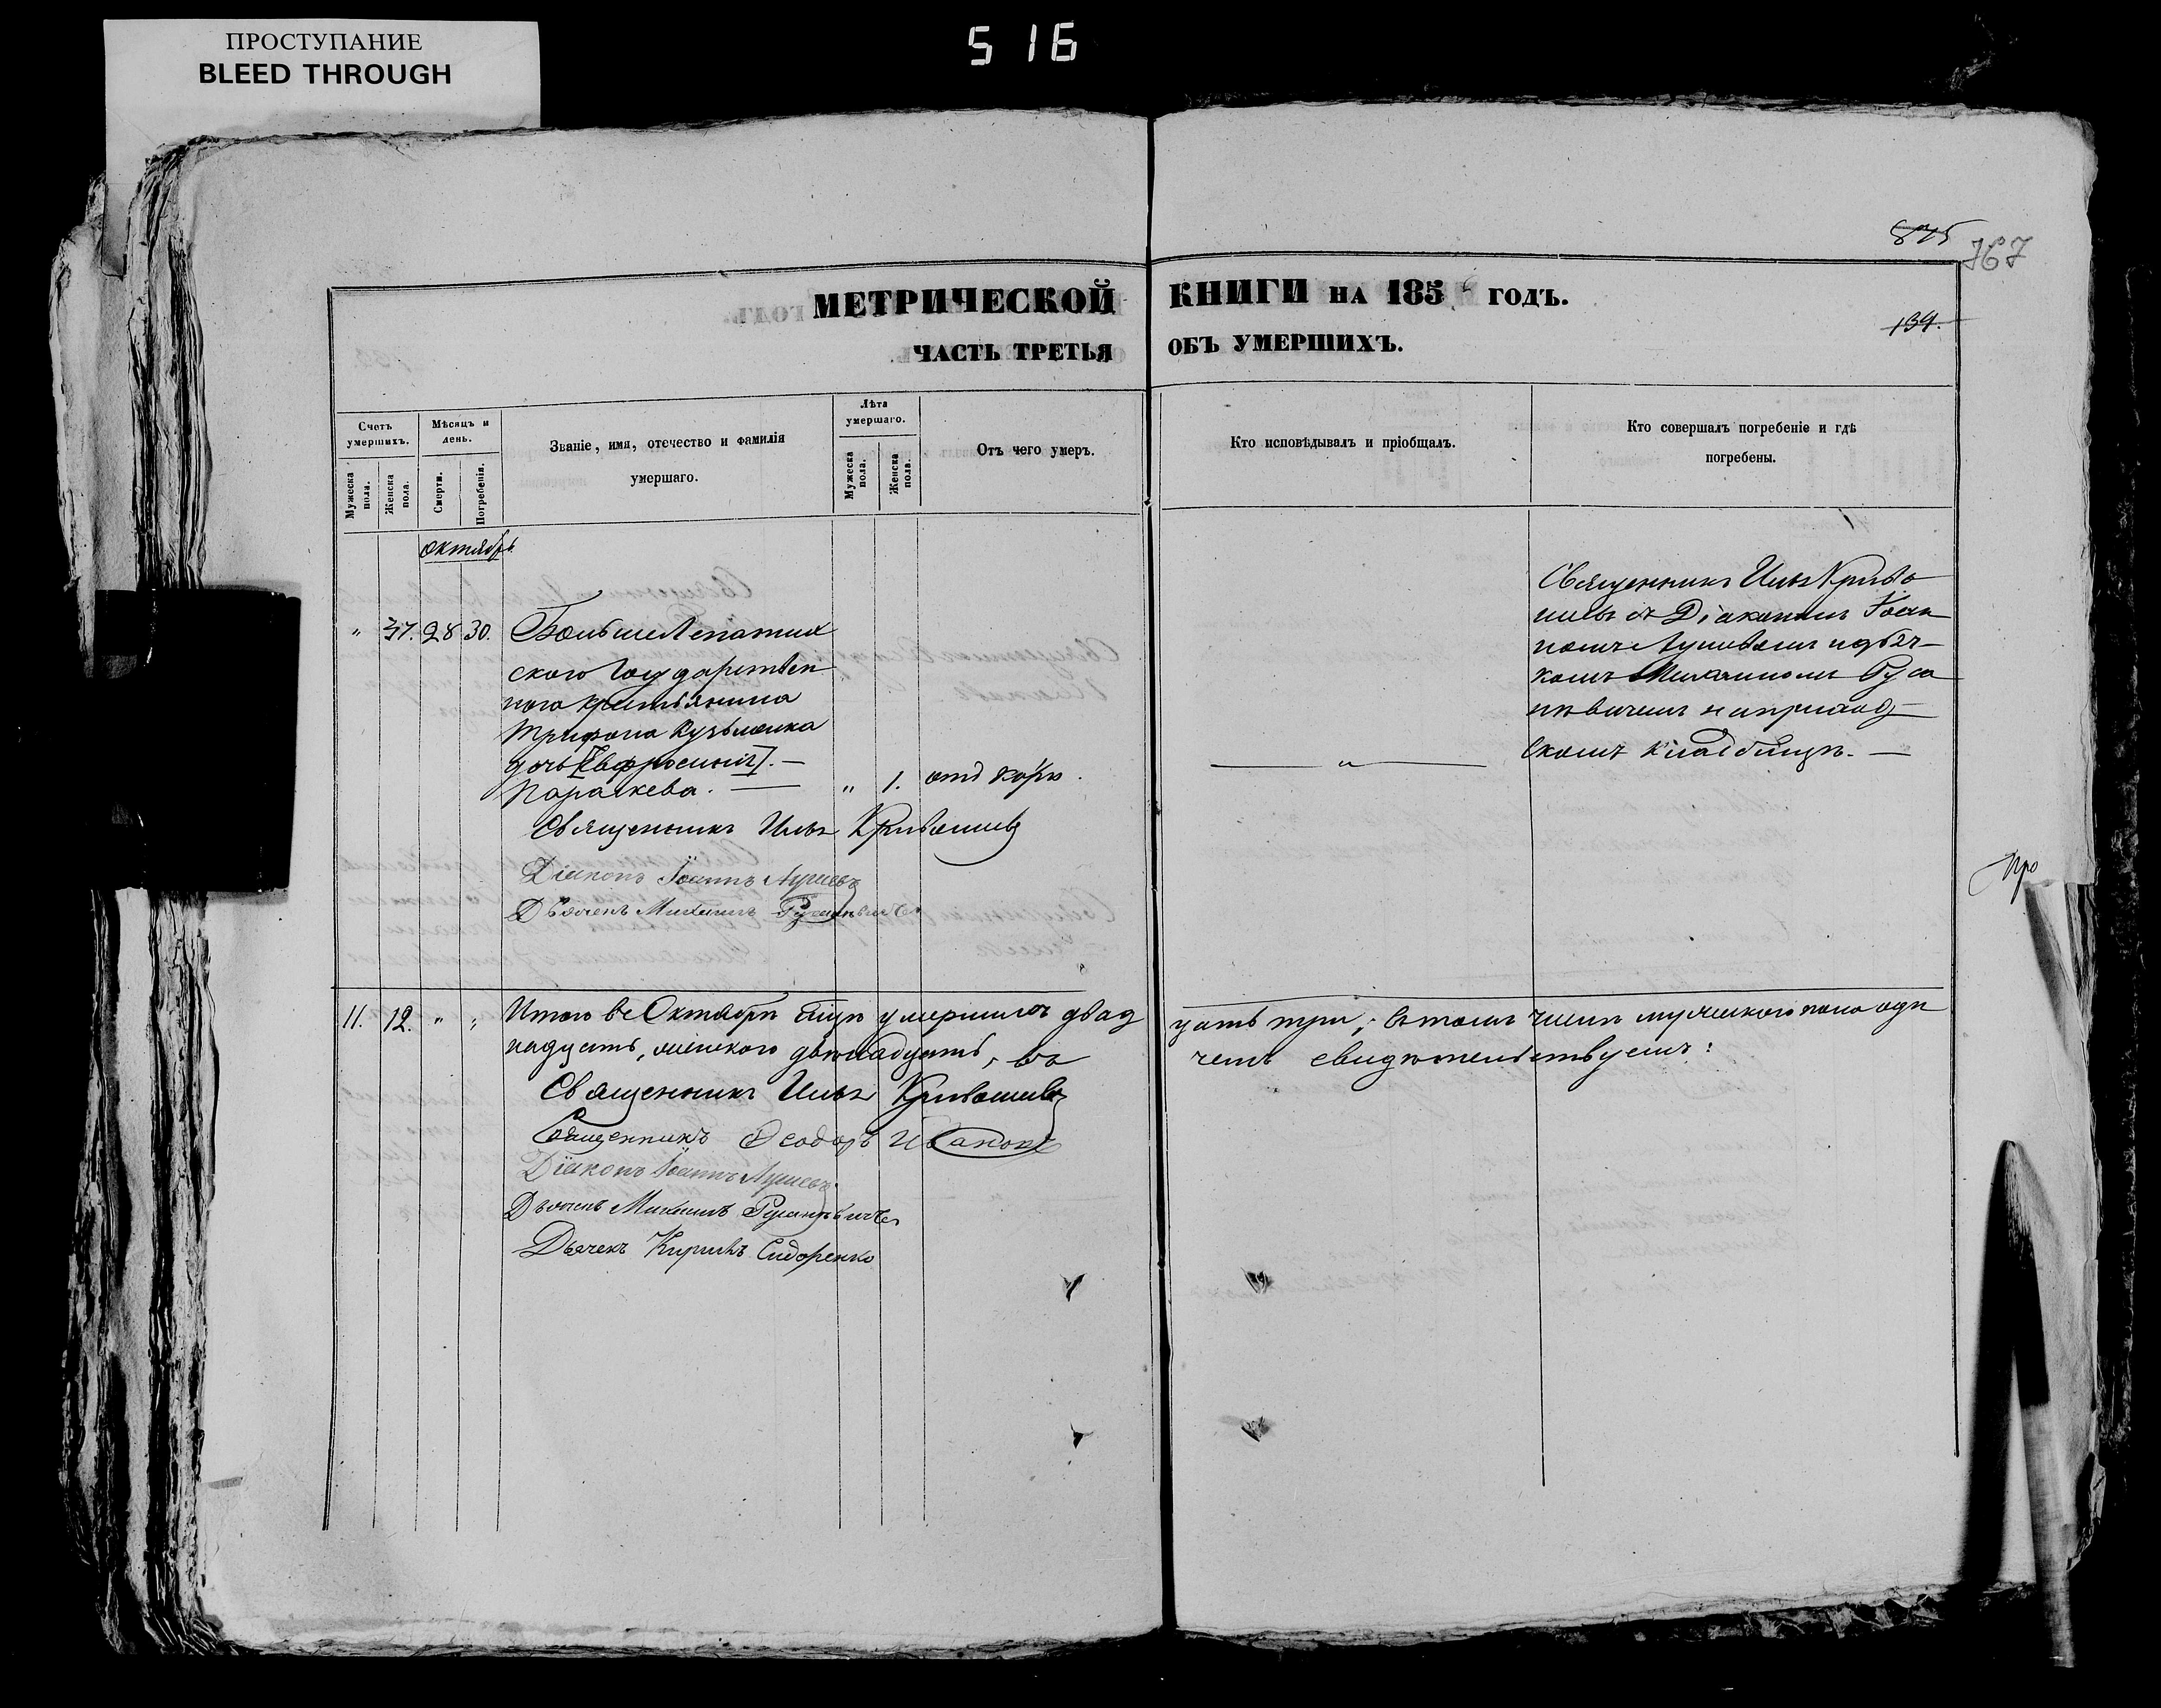 ПРОСТУПАНИЕ
BLEED THROUGH
516
875
767
МЕТРИЧЕСКОЙ КНИГИ НА 185 ГОДЪ.
139.
ЧАСТЬ ТРЕТЬЯ ОБЪ УМЕРШИХЪ.
Счетъ умершихъ.
Мужеска пола.
Женска пола.
Мѣсяцъ и день.
Смерти.
Погребенія.
Званіе, имя, отечество и фамилія
умершаго.
Лѣта умершаго.
Мужеска пола.
Женска пола.
Отъ чего умеръ.
Кто исповѣдывалъ и пріобщалъ.
Кто совершалъ погребеніе и гдѣ
погребены.
октябрь
" 37. 28 30.
Большелепатих
ского Государствен
ного крестьянина
Трифона Кузьменка
дочь [Евфросинія]. —
Параскева. — " 1. отъ кори.
— " —
Священникъ Илья Криво
шивъ съ Діакономъ Іоан
номъ и дьяч-
комъ Михаиломъ Руса
невичемъ на приход-
скомъ кладбищѣ. —
Священникъ Илья Кривошивъ
Діаконъ Іоаннъ
Дьячекъ Михаилъ Русаневичъ
Про
11. 12. " "
Итого въ Октябрѣ умершихъ двад цать три, въ томъ числѣ мужескаго пола оди
надцать, женского двенадцать, въ чемъ свидѣтельствуемъ:
Священникъ Илья Кривошивъ
Священникъ Ѳеодоръ Ивановъ
Діаконъ Іоаннъ
Дьячекъ Михаилъ Русаневичъ
Дьячекъ Кирилъ Сидоренко